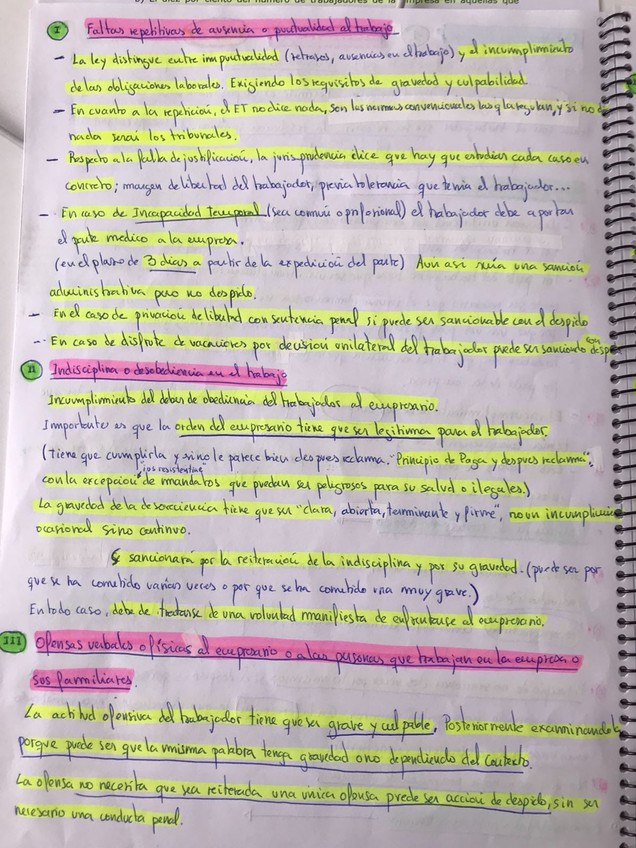 I Faltas repetitivas de ausencia o puntualidad al trabajo
- La ley distingue entre impuntualidad (retrasos, ausencias en el trabajo) y el incumplimiento
de las obligaciones laborales. Exigiendo los requisitos de gravedad y culpabilidad.
- En cuanto a la repetición, el ET no dice nada, son las normas convencionales las q la regulan, y si no d
nada serán los tribunales.
- Respecto a la falta de justificación, la jurisprudencia dice que hay que estudiar cada caso en
concreto; margen de libertad del trabajador, previa tolerancia que tenía el trabajador...
- En caso de Incapacidad temporal (sea común o profesional) el trabajador debe aportar
el parte medico a la empresa.
(en el plazo de 3 días a partir de la expedición del parte) Aun así sería una sanción
administrativa pero no despido.
- En el caso de privación de libertad con sentencia penal si puede ser sancionable con el despido
- En caso de disfrute de vacaciones por decisión unilateral del trabajador puede ser sancionado con desp
II Indisciplina o desobediencia en el trabajo
Incumplimiento del deber de obediencia del trabajador al empresario.
Importante es que la orden del empresario tiene que ser legítima para el trabajador,
(Tiene que cumplirla y si no le parece bien despues reclama. "Principio de Paga y despues reclama",
"ius resistentiae"
con la excepción de mandatos que puedan ser peligrosos para su salud o ilegales.)
La gravedad de la desobediencia tiene que ser "clara, abierta, terminante y firme", no un incumplimien
ocasional sino continuo.
sancionará por la reiteración de la indisciplina y por su gravedad. (puede ser por
que se ha cometido varias veces o por que se ha cometido una muy grave.)
En todo caso, debe de tratarse de una voluntad manifiesta de enfrentarse al empresario.
III Ofensas verbales o físicas al empresario o a las personas que trabajan en la empresa o
sus familiares.
La actitud ofensiva del trabajador tiene que ser grave y culpable, Posteriormente examinando
porque puede ser que la misma palabra tenga gravedad o no dependiendo del contexto.
La ofensa no necesita que sea reiterada una unica ofensa puede ser acción de despido, sin ser
necesario una conducta penal.